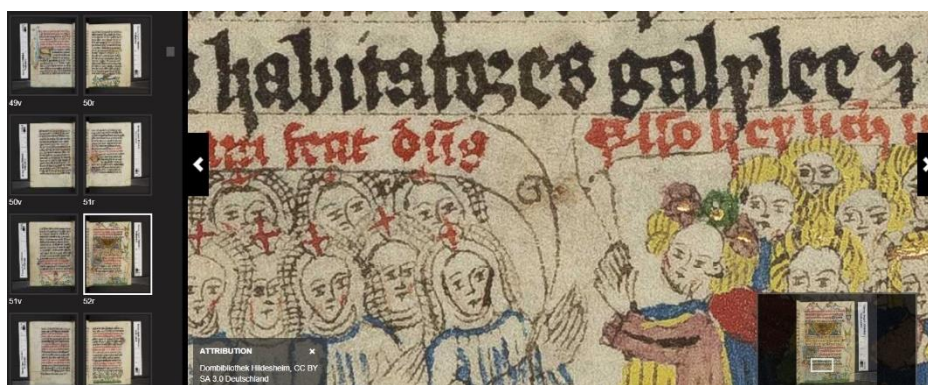 49v 50r
50v 51r
51v 52r
habitatores galylee ⁊
dūs Also
ATTRIBUTION ×
Dombibliothek Hildesheim, CC BY
SA 3.0 Deutschland